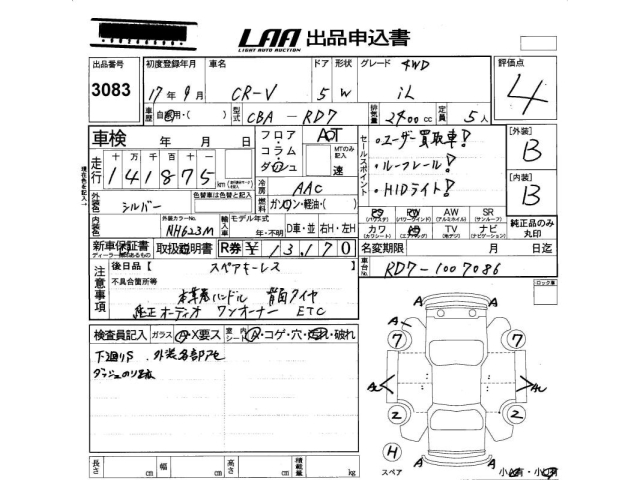 LAA 出品申込書
LIGHT AUTO AUCTION
出品番号 初度登録年月 車名 ドア 形状 グレード 4WD 評価点
3083 17年9月 CR-V 5 W iL 4
車歴 自家用・( ) 型式 CBA-RD7 排気量 2400cc 定員 5人
車検 年 月 日 フロア・コラム・ダッシュ AOT セールスポイント
MTのみ記入 速
・ユーザー買取車!
・ルーフレール!
・HIDライト!
[外装] B
[内装] B
走行 十万 万 千 百 十
141875 km
現在色を記入
外装色 シルバー 色替車は色替と記入
冷房 AAC
燃料 ガソリン・軽油・( )
内装色 外装カラーNo. NH623M 輸入車 モデル年式 年・不明 D車・並 右H・左H
PS PW AW SR
(パワステ) (パワーウインド) (アルミホイル) (サンルーフ)
カワ エアB TV ナビ
(カワシート) (エアバッグ) (地デジ) (ナビゲーション)
純正品のみ丸印
新車保証書 取扱説明書 R券 ¥13,170 名変期限 月 日迄
ディーラー印のあるもの
車台No. RD7-1007086
注意事項 後日品【 スペアキーレス 】
不具合箇所等
本革巻ハンドル 背面タイヤ
純正オーディオ ワンオーナー ETC
ロック車
検査員記入 ガラス A・X要ス 室内シート A・コゲ・穴・汚れ・破れ
下廻りS 外装各部アセ
ダッシュのり跡
A A
7 7
A A
2 2
H
A A
スペア
長さ cm 幅 cm 高さ cm 積載量 kg